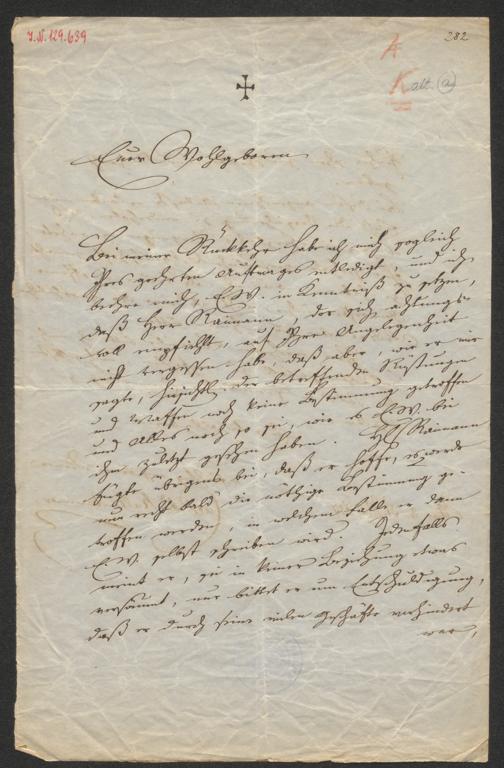 I.N. 129.639
282
K alt. (a)
Euer Wohlgeboren
Bei meiner Rückkehr habe ich mich sogleich
Ihres geehrten Auftrages entledigt, und ich
beehre mich, E.W. in Kenntniß zu setzen,
daß Herr Raimann, der sich achtungs-
voll empfiehlt, auf Ihre Angelegenheit
nicht vergessen habe, daß aber, wie er mir
sagte, hinsichtl. der betreffenden Rüstungen
und Waffen noch keine Bestimmung getroffen
und alles noch so sei, wie es E.W. bei
ihm zuletzt gesehen haben. H. Raimann
fügte übrigens bei, daß er hoffe, es werde
nun recht bald die nöthige Bestimmung ge-
troffen werden, in welchem Falle er dann
E.W. selbst schreiben wird. Jedenfalls
meint er, sei in keiner Beziehung etwas
versäumt, nur bittet er um Entschuldigung,
daß er durch seine vielen Geschäfte verhindert
war,